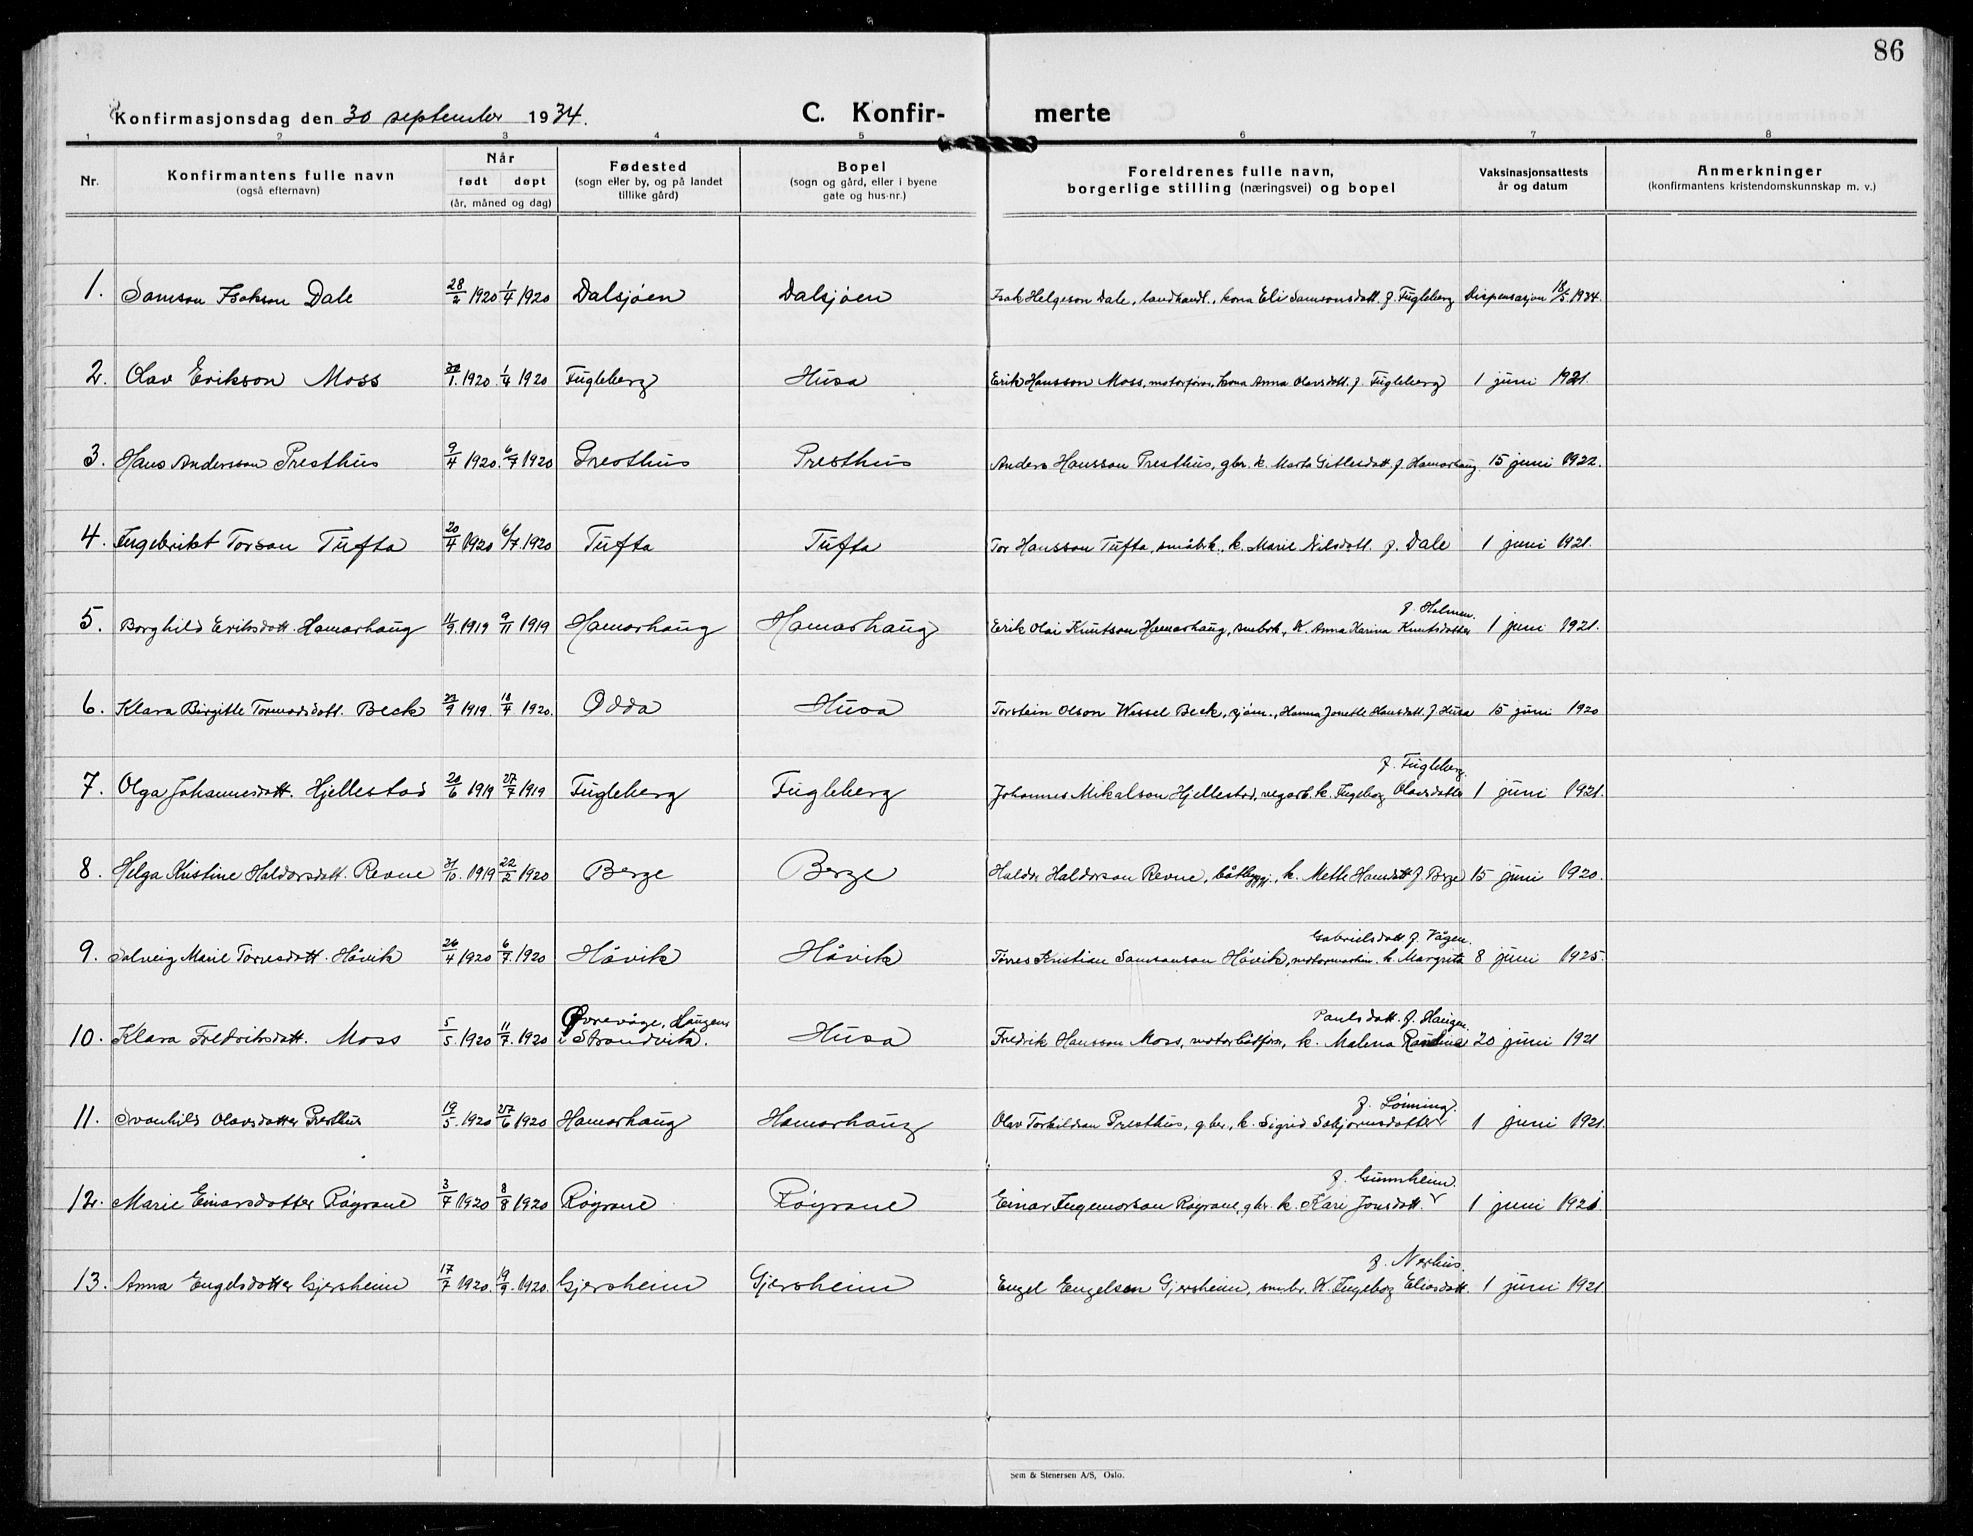 86
Konfirmasjonsdag den 30 september 1934. C. Konfir- merte
1 2 3 4 5 6 7 8
Nr. Konfirmantens fulle navn (også efternavn) Når født døpt (år, måned og dag) Fødested (sogn eller by, og på landet tillike gård) Bopel (sogn og gård, eller i byene gate og hus-nr.) Foreldrenes fulle navn, borgerlige stilling (næringsvei) og bopel Vaksinasjonsattests år og datum Anmerkninger (konfirmantens kristendomskunnskap m. v.)
1. Samson Isakson Dale 28/2 1920 1/4 1920 Dalsjøen Dalsjøen Isak Helgeson Dale, landhandl., kona Eli Samsonsdott. f. Fugleberg Dispensasjon 18/5 1934.
2. Olav Erikson Moss 1. 1920. 1/4 1920 Fugleberg Husa Erik Hansson Moss, motorfører, kona Anna Olavsdott. f. Fugleberg 1 juni 1921.
3. Hans Andersson Presthus 9/4 1920. 6/7 1920 Presthus Presthus Anders Hansson Presthus, gbr. k. Marta Gitlesdott. f. Hamarhaug. 15 juni 1922.
4. Ingebrikt Torson Tufta 20/4 1920 6/7. 1920 Tufta Tufta Tor Hansson Tufta, småbrk., k. Marie Nilsdott. f. Dale 1 juni 1921.
f. Holmen.
5. Borghild Eriksdott. Hamarhaug 11/9. 1919 9/11 1919 Hamarhaug Hamarhaug Erik Olai Knutson Hamarhaug, smbrk., K. Anna Karina Knutsdotter 1 juni 1921.
6. Klara Birgitte Tormodsdott. Beck 9 1919. 18/7 1920. Odda Husa Torstein Olson Wessel Beck, sjøm., Hanna Jonette Hansdott. f. Husa 15 juni 1920
f. Fugleberg.
7. Olga Johannesdott. Hjellestad 20/6 1919 27/7 1919 Fugleberg Fugleberg Johannes Mikalson Hjellestad, vegarb. k. Ingeborg Olavsdotter 1 juni 1921.
8. Helga Kristine Haldorsdott. Revne 31/10. 1919 22/2 1920 Berge Berge Haldor Haldorson Revne, båtbygg., k. Mette Hansdott f. Berge 15 juni 1920.
Gabrielsdott. f. Vågen.
9. Solveig Marie Torresdott. Håvik 26/4 1920 6/7. 1920 Håvik Håvik Tørres Kristian Samsonson Håvik, motormaskin. k. Margrita 8 juni 1925.
Øvrevåge, Haugens Paulsdott. f. Haugen.
10. Klara Fredriksdott. Moss 5/5. 1920 11/7. 1920 i Strandvik. Husa Fredrik Hansson Moss, motorbåtfør., k. Malena Rasmine 20 juni 1921
f. Lønning.
11. Svanhild Olavsdotter Presthus 19/5. 1920 27/6 1920 Hamarhaug Hamarhaug Olav Torkildson Presthus, gbr., k. Sigrid Sebjørnsdotter 1 juni 1921.
f. Gunnheim.
12. Marie Einarsdotter Røgrane 3/7 1920 8/8 1920 Røgrane Røgrane Einar Ingemorson Røgrane, gbr. k. Kari Jonsdott. 1 juni 1921
f. Nerhus.
13. Anna Engelsdotter Gjersheim 17/7 1920. 19/9. 1920. Gjersheim Gjersheim Engel Engelsen Gjersheim, smbr. K. Ingeborg Eliasdott. 1 juni 1921.
Sem & Stenersen A/S, Oslo.